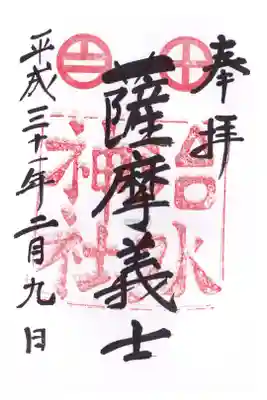 奉拝
治水
神社
薩摩義士
平成三十一年二月九日